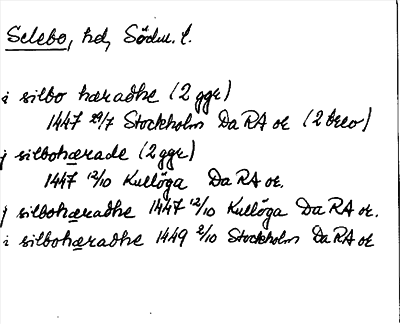 Selebo, hd, Södm. l.
i silbo hæradhe (2 ggr)
1447 29/7 Stockholm DaRA or (2 brev)
j silbohærade (2 ggr)
1447 12/10 Kullöga DaRA or.
j silbohæradhe 1447 12/10 Kullöga DaRA or.
i silbohæradhe 1449 2/10 Stockholm DaRA or